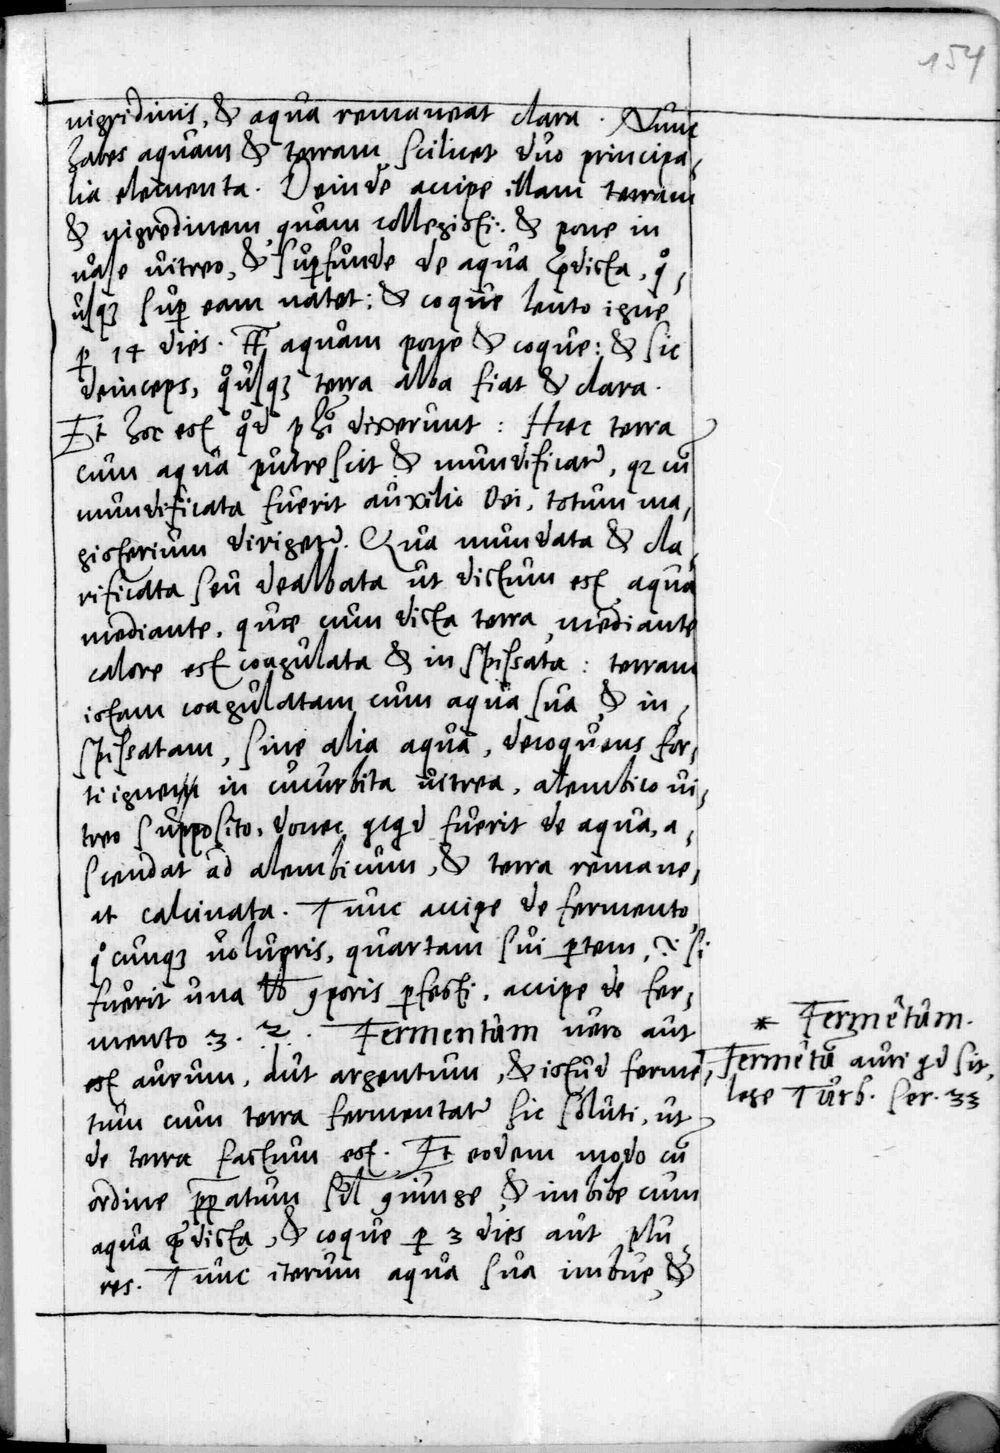 154
nigridinis, & aqua remaneat clara. Nunc
habes aquam & terram scilicet duo principa,
lia elementa. Deinde accipe illam terram
& nigredinem quam collegisti: & pone in
vase vitreo, & supfunde de aqua pdicta, qo,
usqz sup eam natet: & coque lento igne
p 14 dies. It aquam pone & coque: & sic
deinceps, qousqz terra alba fiat & clara.
Et hoc est qd phi dixerunt: Haec terra
cum aqua putrescit & mundificatr, qz cū
mundificata fuerit auxilio Dei, totum ma,
gisterium dirigetr. Qua mundata & cla,
rificata seu dealbata ut dictum est aqua
mediante, quae cum dicta terra mediante
calore est coagulata & inspissata: terram
istam coagulatam cum aqua sua & in,
spissatam, sine alia aqua, decoquens for,
ti igne in cucurbita vitrea, alembico vi,
treo supposito, donec qcqd fuerit de aqua, a,
scendat ad alembicum, & terra remane,
at calcinata. Tunc accipe de fermento
qocunqz volueris, quartam sui ptem, .i. si
fuerit una lb 9poris pfecti, accipe de fer,
mento 3. Fermentum vero aut
est aurum, aut argentum, & istud fermē,
tum cum terra fermentatr sic soluti, ut
de terra factum est. Et eodem modo cū
ordine ppatum sil 9iunge & imbibe cum
aqua pdicta, & coque p 3 dies aut plu
res. Tunc iterum aqua sua imbue, &
* Fermētum.
Fermētū auri qd sit,
lege Turb. ser. 33